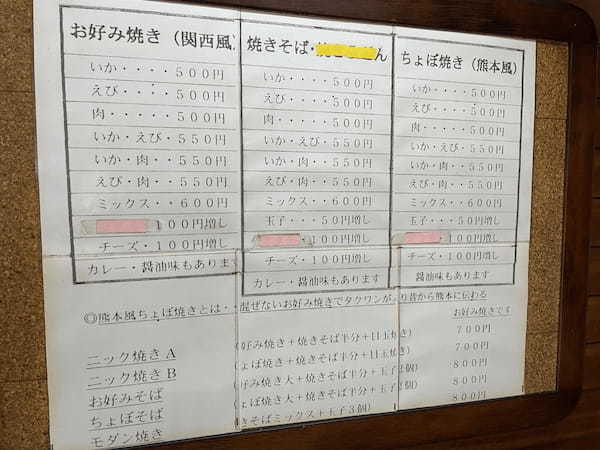 お好み焼き（関西風）
いか・・・・５００円
えび・・・・５００円
肉・・・・・５００円
いか・えび・５５０円
いか・肉・・５５０円
えび・肉・・５５０円
ミックス・・６００円
１００円増し
チーズ・１００円増し
カレー・醤油味もあります
焼きそば・
ん
いか・・・・５００円
えび・・・・５００円
肉・・・・・５００円
いか・えび・５５０円
いか・肉・・５５０円
えび・肉・・５５０円
ミックス・・６００円
玉子・・・５０円増し
・１００円増し
チーズ・１００円増し
カレー・醤油味もあります
ちょぼ焼き（熊本風）
いか・・・・５００円
えび・・・・５００円
肉・・・・・５００円
いか・えび・５５０円
いか・肉・・５５０円
えび・肉・・５５０円
ミックス・・６００円
玉子・・・５０円増し
・１００円増し
チーズ・１００円増し
醤油味もあります
◎熊本風ちょぼ焼きとは・・混ぜないお好み焼きでタクワンが
り昔から熊本に伝わる
お好み焼きです
ニック焼きＡ
好み焼き＋焼きそば半分＋目玉焼き）
７００円
ニック焼きＢ
ょぼ焼き＋焼きそば半分＋目玉焼き）
７００円
お好みそば
好み焼大＋焼きそば半分＋玉子
個）
８００円
ちょぼそば
ょぼ焼大＋焼きそば半分＋玉子
個）
８００円
モダン焼き
きそばミックス＋玉子３個）
８００円